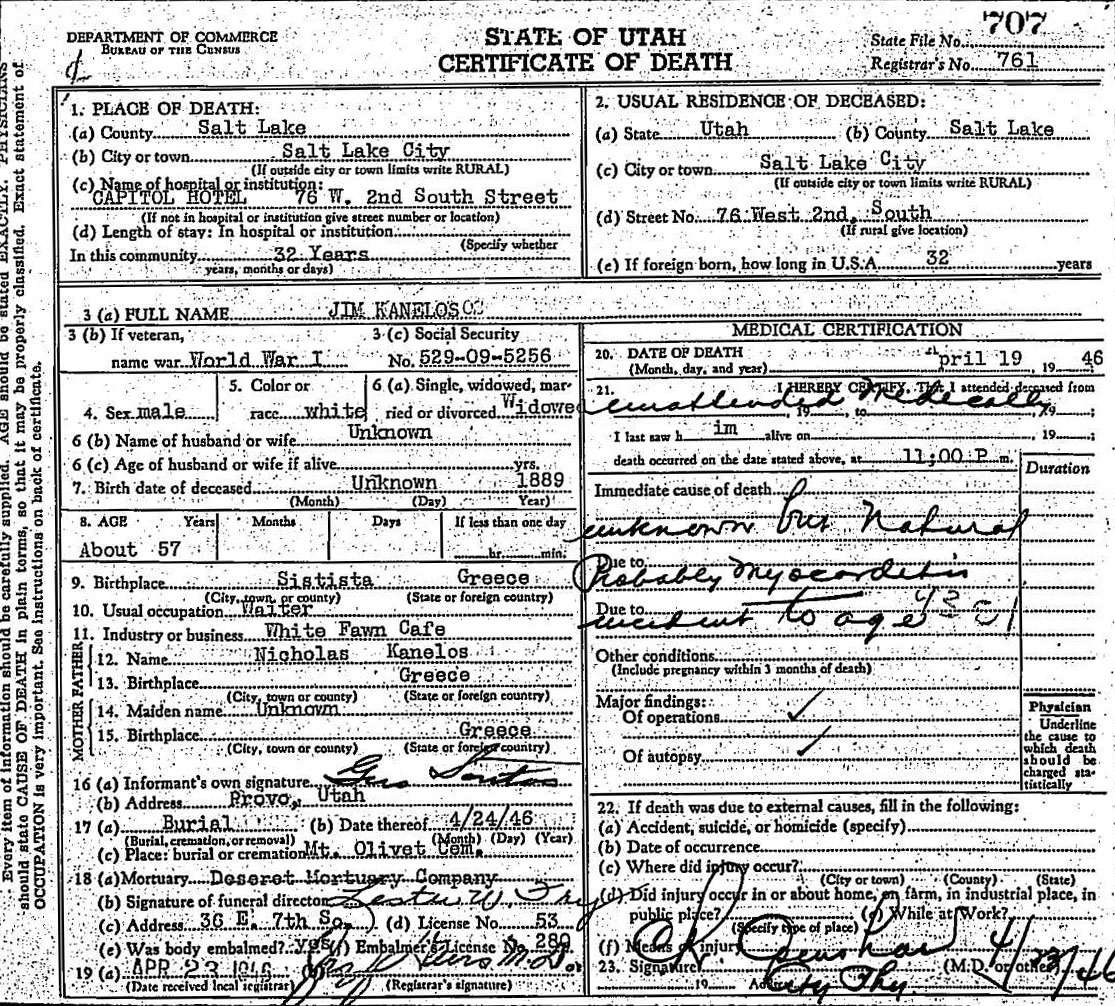 DEPARTMENT OF COMMERCE
BUREAU OF THE CENSUS
STATE OF UTAH
CERTIFICATE OF DEATH
State File No. 707
Registrar's No. 761
Every item of information should be carefully supplied. AGE should be stated EXACTLY. PHYSICIANS
should state CAUSE OF DEATH in plain terms, so that it may be properly classified. Exact statement of
OCCUPATION is very important. See instructions on back of certificate.
1. PLACE OF DEATH:
(a) County Salt Lake
(b) City or town Salt Lake City
(If outside city or town limits write RURAL)
(c) Name of hospital or institution:
CAPITOL HOTEL 76 W. 2nd South Street
(If not in hospital or institution give street number or location)
(d) Length of stay: In hospital or institution
(Specify whether
In this community 32 Years
years, months or days)
2. USUAL RESIDENCE OF DECEASED:
(a) State Utah (b) County Salt Lake
(c) City or town Salt Lake City
(If outside city or town limits write RURAL)
(d) Street No. 76 West 2nd. South
(If rural give location)
(e) If foreign born, how long in U.S.A. 32 years
3 (a) FULL NAME JIM KANELOS
3 (b) If veteran,
name war World War I
3 (c) Social Security
No. 529-09-5256
4. Sex male
5. Color or
race white
6 (a) Single, widowed, mar-
ried or divorced Widowe
6 (b) Name of husband or wife Unknown
6 (c) Age of husband or wife if alive yrs.
7. Birth date of deceased Unknown 1889
(Month) (Day) Year)
8. AGE Years Months Days If less than one day
About 57 hr. min.
9. Birthplace Sistista Greece
(City, town, or county) (State or foreign country)
10. Usual occupation Waiter
11. Industry or business White Fawn Cafe
FATHER
12. Name Nicholas Kanelos
13. Birthplace Greece
(City, town or county) (State or foreign country)
MOTHER
14. Maiden name Unknown
15. Birthplace Greece
(City, town or county) (State or foreign country)
16 (a) Informant's own signature Gus
(b) Address Provo, Utah
17 (a) Burial (b) Date thereof 4/24/46
(Burial, cremation, or removal) (Month) (Day) (Year)
(c) Place: burial or cremation Mt. Olivet Cem.
18 (a) Mortuary Deseret Mortuary Company
(b) Signature of funeral director
(c) Address 36 E. 7th So. (d) License No. 53
(e) Was body embalmed? yes (f) Embalmer's License No. 280
19 (a) APR 23 1946 (b)
(Date received local registrar) (Registrar's signature)
MEDICAL CERTIFICATION
20. DATE OF DEATH April 19 19 46
(Month, day, and year)
21. I HEREBY CERTIFY, That I attended deceased from
unattended Medically 19 , to , 19 ;
I last saw h im alive on , 19 ;
death occurred on the date stated above, at 11;00 P m.
Duration
Immediate cause of death
unknown but Natural
Due to
Probably Myocarditis
Due to
incident to age
Other conditions
(Include pregnancy within 3 months of death)
Major findings:
Of operations ✓
Of autopsy ✓
Physician
Underline
the cause to
which death
should be
charged sta-
tistically
22. If death was due to external causes, fill in the following:
(a) Accident, suicide, or homicide (specify)
(b) Date of occurrence
(c) Where did injury occur?
(City or town) (County) (State)
(d) Did injury occur in or about home, on farm, in industrial place, in
public place? (e) While at Work?
(Specify type of place)
(f) Means of injury
23. Signature (M.D. or other) 4/23/46
19 Address City Phy.